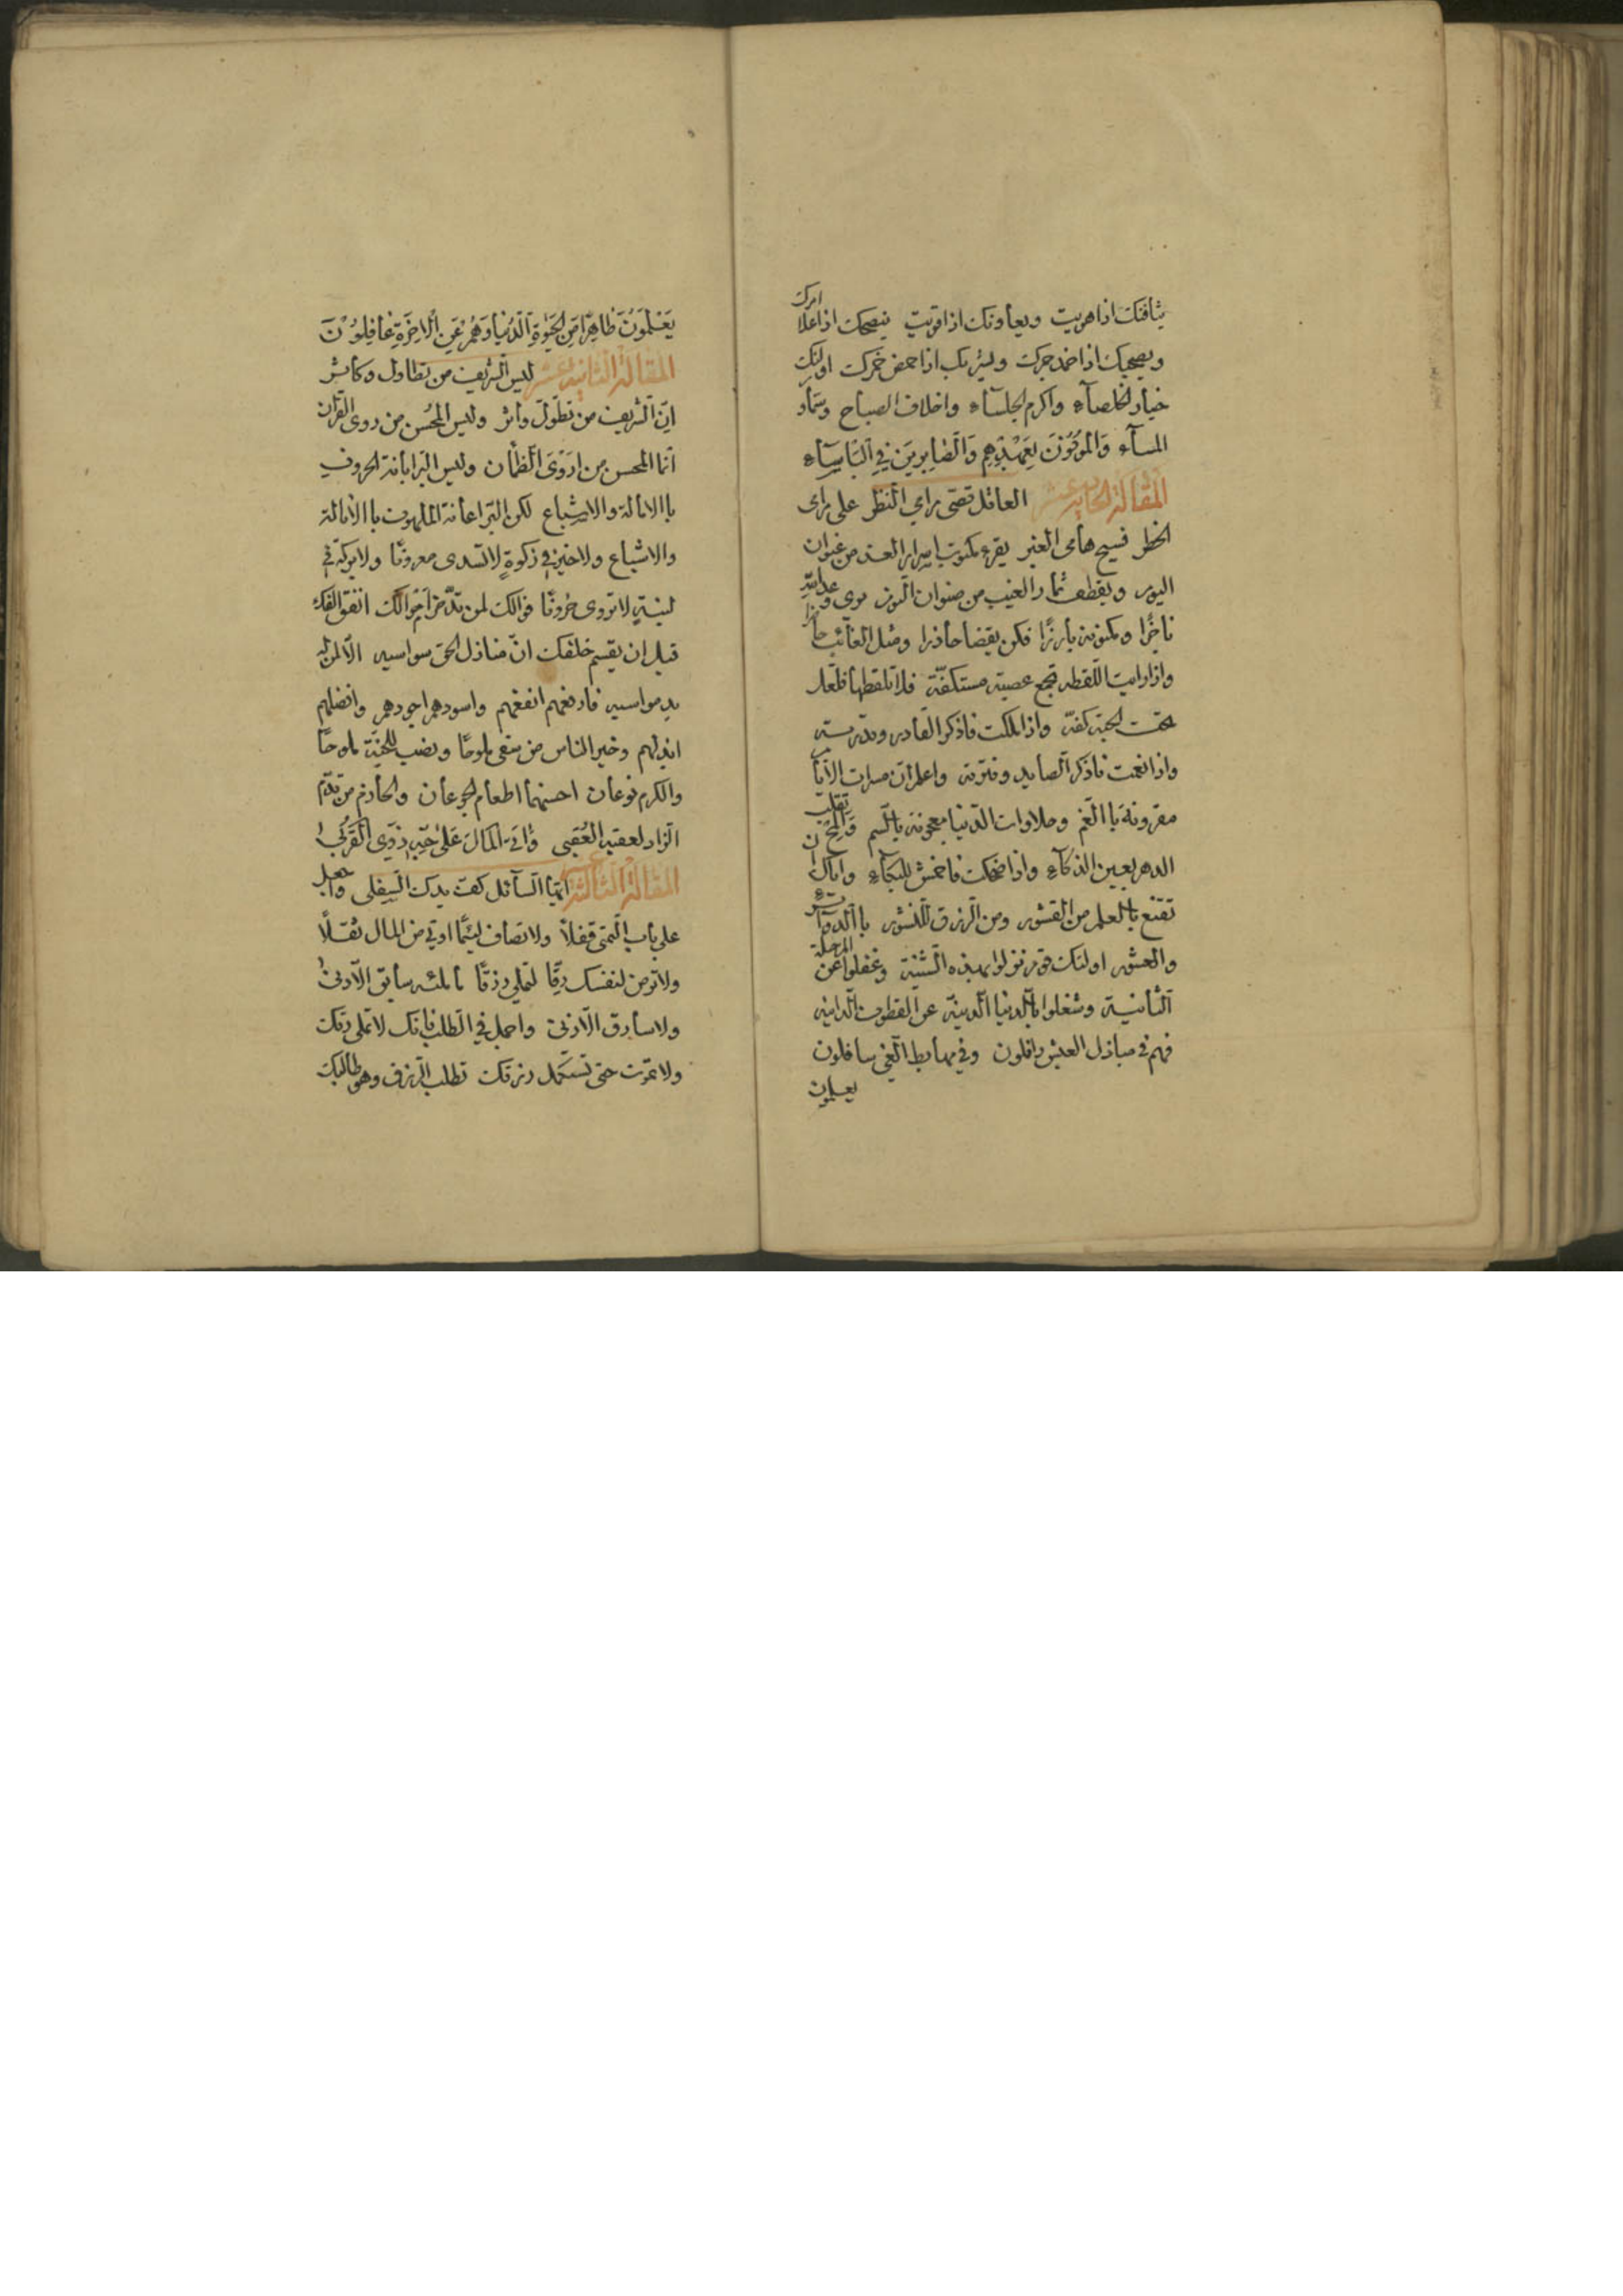 يثافنك اذا هويت ويعاونك اذا قويت ينصحك اذا علا امرك
ويصحبك اذا خمد جمرك ويشربك اذا حمض خمرك اولئك
خيار الخلصآء واكرم الجلسآء واخلاف الصباح وسمار
المسآء وَالمُوفُونَ بِعَهْدِهِم وَالصَّابِرِينَ فِي البَاسَآءِ
المقالة الحادية عشر العاقل قصى مرامي النظر على مراى
الخطر فسيح هامى العبر يقرء مكتوب اسرار الغد من عنوان
اليوم ويقطف ثمار الغيب من صنوان النوم يرى وعد الله
ناجزًا ومكنونه بارزًا فكن يقضا حاذرا ومثل الغآئب حاضرا
واذا رايت اللقطه تجمع عصيته مستكفّة فلا تلقطها فلعل
تحت الحبة كفة واذا ملكت فاذكر القادر وقدرته
واذا نعمت فاذكر الصايد وفترته واعلم ان مسرات الايام
مقرونة باالغم وحلاوات الدنيا معجونة باالسم والمح تقلب
الدهر بعين الذكآء واذا ضحكت فاخمش للبكآء واياك ان
تقنع باالعلم من القشور ومن الرزق المنشور باالدواء
والعشور اولئك قوم نزلوا بهذه الشنية وغفلوا عن المرحلة
الثانية وشغلوا باالدنيا الدنية عن القطوف الدانيه
فهم في مباذل العيش رافلون وفي مهابط الغي سافلون
يعلمون
يَعْلَمُونَ ظَاهِرًا مِنَ الحَيٰوةِ الدُّنْيَا وَهُمْ عَنِ الْاخِرَةِ غَافِلُوْنَ
المقالة الثانية عشر ليس الشريف من تطاول وكاثر
انّ الشريف من تطوّل واثر وليس المحُسن من روى القرآن
انما المحسن من ارَوْىَ الظمْأن وليس البر ابانة الحروف
باالامالة والاشباع لكن البر اعانة الملهوف باالانالة
والاشباع ولا خير في زكوةٍ لا تسدى معروفًا ولا بركة في
لبنةٍ لا تروى خروفًا فوالك لمن تدّخر امَوالك انفق الفك
قبل ان يقسم خلفك انّ منازل الخق سواسيه الا لمن له
يد مواسيه فارفعهم انفعهم واسودهم اجودهم وافضلهم
ابذلهم وخير الناس من سقى ملوحًا ونصب للجنّة ملوحًا
والكرم نوعان احسنهما اطعام الجوعان والحازم من قدّم
الزاد لعقبة العُقبى وٰاتى المَالَ عَلىٰ حُبِّهِ ذَوِى القُربٰى
المقالة الثالثة عشر ايّها السآئل كفّ يدك السفلى واجعل
على باب التمنى قفلاً ولا تصاف لئيمًا اوتى من المال ثقلًا
ولا ترض لنفسك رقًّا لتملي رزقًا ما لمئه سابق الادنىٰ
ولا سارق الادنى واجمل في الطلب فانك لا تملى رقك
ولا تموت حتى تستكمل رزقك تطلب الرزق وهو طالبك